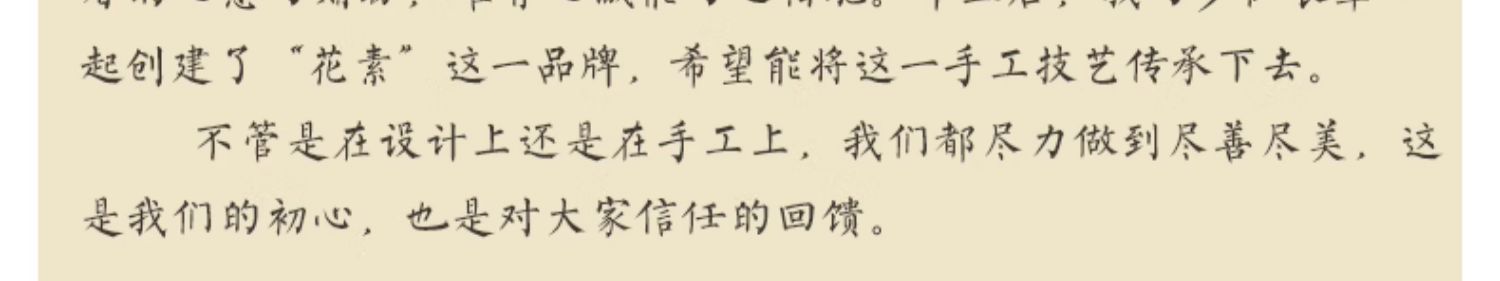 起创建了“花素”这一品牌，希望能将这一手工技艺传承下去。
不管是在设计上还是在手工上，我们都尽力做到尽善尽美，这
是我们的初心，也是对大家信任的回馈。